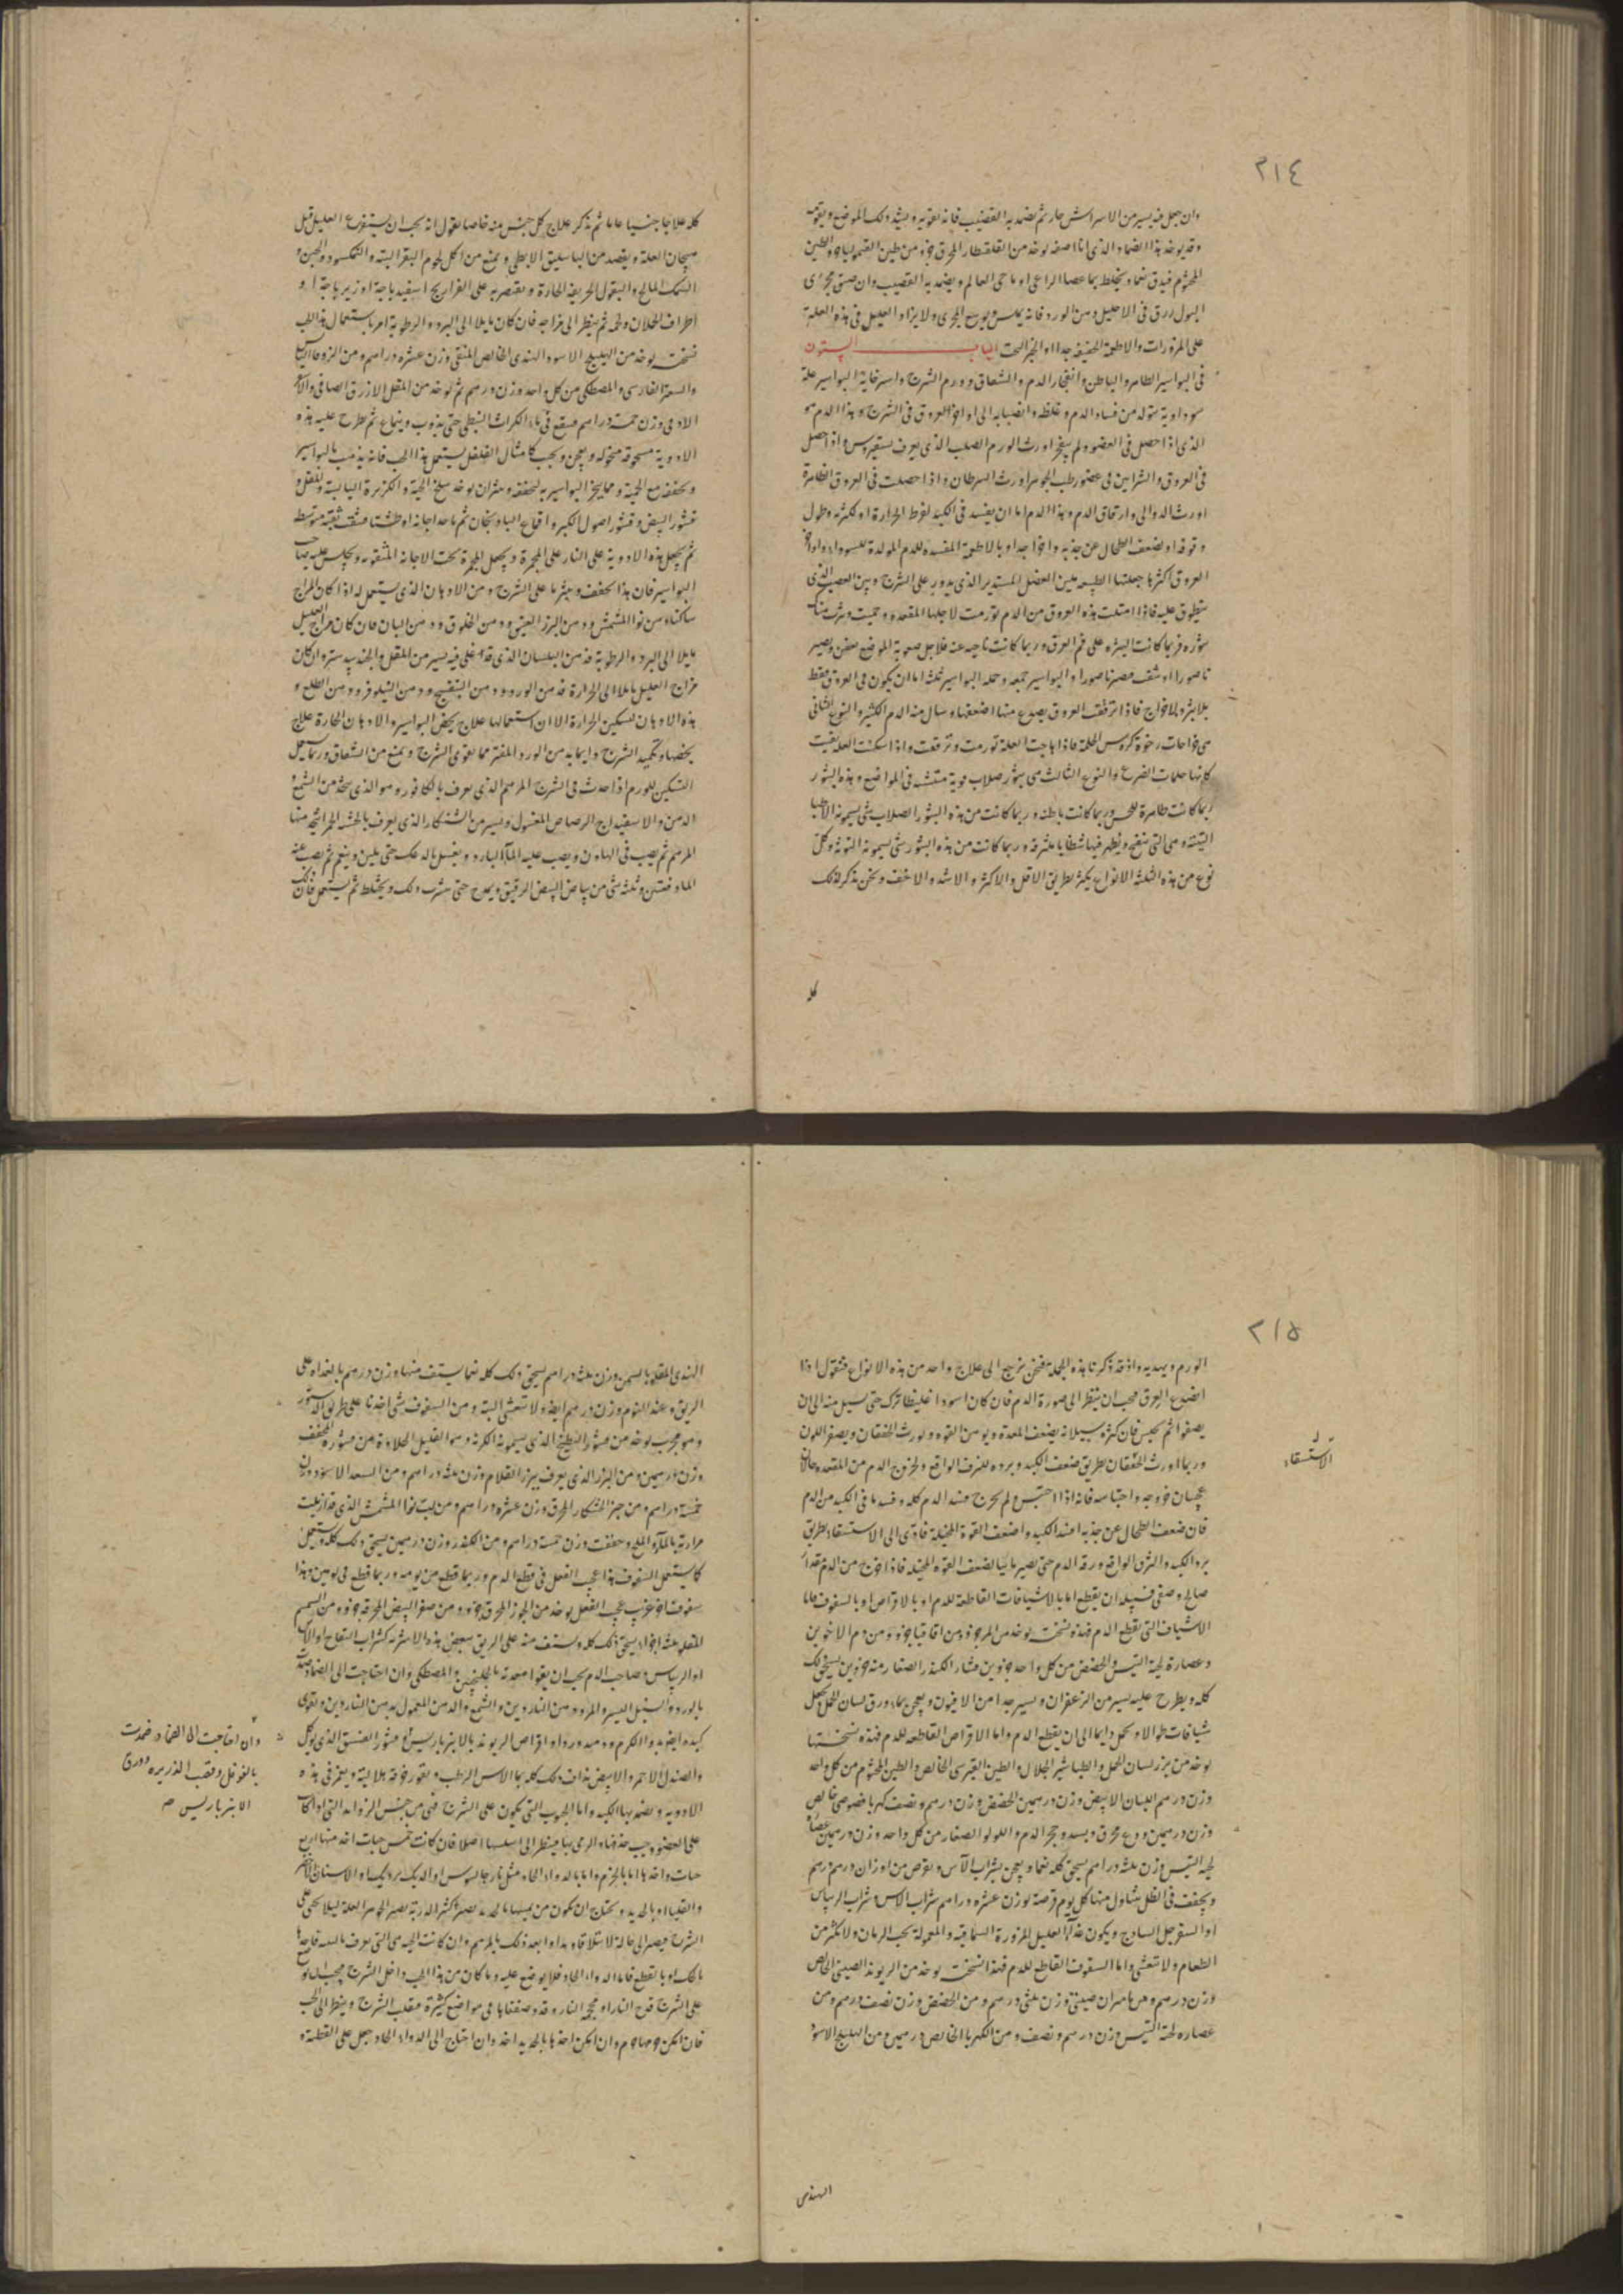 ٣١٤
وان جعل فيه يسير من الاسراش جاز ثم يضمد به القضيب فانه يقويه ويشد ذلك الموضع ويقويه
وقد يوخذ هذا الضماد الذي انا اصفه يوخذ من القلقطار المحرق جزو من طين القيموليا جزو والطين
المختوم فيدق نعما ويخلط بماء عصا الراعي او ماء حي العالم ويضمد به القضيب وان ضيق مجرى
البول زرق في الاحليل دهن الورد فانه يملس ويوسع المجرى ولا يزاد العليل في هذه العلة
على المزورات والاطعمة الخفيفة جدا او الخبز البحت الباب الستون
في البواسير الظاهر والباطن وانفجار الدم والشقاق وورم الشرج واسترخاية البواسير علة
سوداوية تتولد من فساد الدم وغلظه وانصبابه الى افواه العروق في الشرج وهذا الدم هو
الذي اذا حصل في العضو ولم ينفجر اورث الورم الصلب الذي يعرف بسقيروس واذا حصل
في العروق والشرايين في عضو رطب الجوهر اورث السرطان واذا حصلت في العروق الظاهرة
اورث الدوالي واحتراق الدم وهذا الدم اما ان يفسد في الكبد لفرط الحرارة او لكثرته وطول
وقوفه او لضعف الطحال عن جذبه واخراجه او بالاطعمة المفسدة للدم المولدة للسوداء وافواه
العروق اكثرها جعلتها الطبيعة بين العضل المستدير الذي يدور على الشرج وبين العصب الذي
ينطوق عليه فاذا امتلت هذه العروق من الدم تورمت لاجلها المقعدة وحميت وبثرت هناك
بثوره فربما كانت البثره على فم العرق وربما كانت ناحية عنه فلاجل صعوبة الموضع تعفن ويصير
ناصورا او تثقب فتصير ناصورا والبواسير جميعه وجملة البواسير ثلثة اما ان يكون في العروق فقط
بلا بثر ولا خراج فاذا ترققت العروق يصوع منها اضعفها وسال منه الدم الكثير والنوع الثاني
هي خراجات رخوة كروس الحلمة فاذا هاجت العلة تورمت وترققت واذا سكنت العلة بقيت
كانها حلمات الضرع والنوع الثالث هي بثور صلاب قوية منتشه في المواضع وهذه البثور
ربما كانت ظاهرة للحس وربما كانت باطنه وربما كانت من هذه البثور الصلاب شي يسمونه الاطبا
التينة وهي التي تنفتح ويظهر فيها شظايا مثرفة وربما كانت من هذه البثور شي يسمونه التوثة وكل
نوع من هذه الثلثة الانواع يكثر بطريق الاقل والاكثر والاشد والاخف ونحن نذكر لذلك
كله
كله علاجا جنسيا عاما ثم نذكر علاج كل جنس منه خاصا نقول انه يجب ان يستفرغ العليل قبل
هيجان العلة ويفصد من الباسليق الابطي ويمنع من اكل لحوم البقر البتة والنمكسود والجبن و
السمك المالح والبقول الحريفة الحارة ويقتصر به على الفراريج اسفيدباجة او زيرباجة او
اطراف الحملان ولحمه ثم ينظر الى مزاجه فان كان مايلا الى البرد والرطوبة امر باستعمال هذا الحب
نسخته يوخذ من الهليلج الاسود الهندي الخالص المنقى وزن عشرة دراهم ومن الزوفا اليابس
والسعتر الفارسي والمصطكى من كل واحد وزن درهم ثم يوخذ من المقل الازرق الصافي والاكر
الادمي وزن خمسة دراهم فينقع في ماء الكراث النبطي حتى يذوب وينماع ثم يطرح عليه هذه
الادوية مسحوقة منخولة ويعجن ويحبب كامثال الفلفل يستعمل هذا الحب فانه يذهب بالبواسير
ويجففه مع الحمية ومما يبخر البواسير به لتجففه وينثر ان يوخذ سلخ الحية والكزبرة اليابسة والمقل و
قشور البيض وقشور اصول الكبر واقماع الباذنجان ثم ياخذ اجانة او طشتا فيثقب ثقبه متوسطه
ثم يجعل هذه الادوية على النار على المجمرة ويجعل المجمرة تحت الاجانة المثقوبة ويجلس عليه صاحب
البواسير فان هذا يجففه وينثرها على الشرج ومن الادهان الذي يستعمل له اذا كان المزاج
ساكنا دهن نوا المشمش ودهن البزر العيني ودهن الخلوق ودهن البان فان كان مزاج العليل
مايلا الى البرد والرطوبة فدهن البلسان الذي قد اغلي فيه يسير من المقل والجندبيدستر وان كان
مزاج العليل مايلا الى الحرارة فدهن الورد ودهن البنفسج ودهن النيلوفر ودهن الطلع و
هذه الادهان لتسكين الحرارة الا ان استعمالها علاج يخص البواسير والادهان الحارة علاج
يخصها وتكميد الشرج دايما بدهن الورد المفتر مما يقوي الشرج ويمنع من الشقاق وربما جعل
لتسكين الورم اذا حدث في الشرج المرهم الذي يعرف بالكافور وهو الذي يتخذ من الشمع
الدهن والاسفيداج الرصاص المغسول ويسير من الشنكار الذي يعرف بالخشة الحمرا يتخذ منها
المرهم ثم يصب في الهاون ويصب عليه الماء البارد ويغسل بالدعك حتى يلين وينعم ثم يصب عنه
الماء دفعتين وثلثه شي من بياض البيض الرقيق ويدعج حتى يشرب ذلك ويختلط ثم يستعمل فان ذلك
٣١٥
الورم ويهديه واذ قد ذكرنا هذه الجملة فنحن نرجع الى علاج واحد من هذه الانواع فنقول اذا
انصوع العرق فيجب ان ينظر الى صورة الدم فان كان اسودا غليظا ترك حتى يسيل منه الى ان
يصفوا ثم يحبس فان كثرة سيلانه يضعف المعدة ويوهن القوه ويورث الخفقان ويصفر اللون
وربما اورث الخفقان بطريق ضعف الكبد وبرده للنزف الواقع ولخروج الدم من المقعدة حالان
عجيبان خروجه واحتباسه فانه اذا احتبس ولم يخرج فسد الدم كله وفسد ما في الكبد من الدم
فان ضعف الطحال عن جذبه افسد الكبد واضعف القوة المحيلة فادى الى الاستسقاء بطريق
برد الكبد والنزف الواقع ورقة الدم حتى يصير مائيا لضعف القوه المحيلة فاذا خرج من الدم مقدار
صالح وصفي فسبيله ان يقطع اما بالاشيافات القاطعة للدم او بالاقراص او بالسفوف فاما
الاشياف التي تقطع الدم فهذه نسخته يوخذ من المر جزو ومن اقاقيا جزو ومن دم الاخوين
وعصارة لحية التيس والحضض من كل واحد جزوين قشار الكندر الصغار منه جزوين يسحق ذلك
كله ويطرح عليه يسير من الزعفران ويسير جدا من الافيون ويعجن بماء ورق لسان الحمل ويجعل
شيافات طوالا ويحمل دايما الى ان يقطع الدم واما الاقراص القاطعه للدم فهذه نسختها
يوخذ من بزر لسان الحمل والطباشير الجلال والطين القبرسي الخالص والطين المختوم من كل واحد
وزن درهم اللبان الابيض وزن درهمين الحضض وزن درهم ونصف كهربا خصوصي خالص
وزن درهمين ودع محرق وبسد وحجر الدم واللولو الصغار من كل واحد وزن درهمين عصارة
لحية التيس وزن ثلثة دراهم يسحق كله نعما ويعجن بشراب الآس ويقرص من اوزان درهم درهم
ويجفف في الظل يتناول منها كل يوم قرصة بوزن عشرة دراهم شراب الاس وشراب الريباس
او السفرجل الساذج ويكون غذاء العليل المزورة السماقية والمعمولة بحب الرمان ولا يكثر من
الطعام ولا يتعشى واما السفوف القاطع للدم فهذه النسخت يوخذ من الريوند الصيني الخالص
وزن درهم ومن مامران صيني وزن ثلثي درهم ومن الحضض وزن نصف درهم ومن
عصارة لحية التيس وزن درهم ونصف ومن الكهربا الخالص درهمين ومن الهليلج الاسود
الاستسقاء
الهندى
الهندي المقلو بالسمن وزن ثلثة دراهم يسحق ذلك كله نعما يستف منها وزن درهم بالغداة على
الريق وعند النوم وزن درهم ايضا ولا يتعشى البتة ومن السفوف شي اخذنا على طريق الدستور
وهو مجرب يوخذ من قشور البطيخ الذي يسمونه الكرنه وهو القليل الحلاوة من قشوره المجفف
وزن درهمين ومن البزر الذي يعرف ببزر القلام وزن ثلثة دراهم ومن السعد الاسود وزن
خمسة دراهم ومن خبز الخشكار المحرق وزن عشرة دراهم ومن لب نوا المشمش الذي قد ازيلت
مرارته بالماء والملح وجففت وزن خمسة دراهم ومن الكندر وزن درهمين يسحق ذلك كله ويستعمل
كما يستعمل السفوف هذا عجيب الفعل في قطع الدم وربما قطع من يومه وربما قطع في يومين وهذا
سفوف اخر غريب عجيب الفعل يوخذ من الجوز المحرق جزو ومن صفر البيض المحرقة جزو ومن السمسم
المقلو ثلثة اجزاء يسحق ذلك كله ويستف منه على الريق ببعض هذه الاشربه كشراب التفاح او الاس
او الريباس وصاحب الدم يجب ان يقوا معدته بالجلنجبين والمصطكى وان احتاجت الى الضماد ضمدت
بالورد والسنبل اليسير والمر ودهن الناردين والشمع والدهن المعمول به من الناردين ويقوى
كبده ايضا بدواء الكركم وضميده ودواء اقراص الريوند بالانبرباريس وقشور الفستق الذي يوكل
والصندل الاحمر والابيض يداف ذلك كله بماء الاس الرطب ويقور خرقة هلالية ويغمر في هذه
الادوية ويضمد بها الكبد واما الحبوب التي يكون على الشرج فهي من جنس الزوايد التي اذا كانت
على العضو وجب حذفها والرمي بها فينظر الى اسلسها اصلا فان كانت خمس حبات اخذ منها اربع
حبات واخذها اما بالخزم واما بالدواء الحاد مثل نارجالسوس او الديك برديك او الاشنان الاخضر
والقليا او بالحديد ويحتاج ان يكون من يقطعها بالحديد بصيرا كثير الدربة بصير بجوهر العلة ليلا يجني على
الشرج فيصير الى حالة لا يتلافى ويداوا بعد ذلك بالمرهم وان كانت الحبة هي التي تعرف بالتينة فاخذها
بالحك او بالقطع فاما الدواء الحاد فلا يوضع عليه وما كان من هذا الحب داخل الشرج فيجب ان يوضع
على الشرج قدح النار او محجمة النار وقد وصفناها في مواضع كثيرة فيقلب الشرج وينظر الى الحب
فان امكن خزمها خزم وان امكن اخذها بالحديد اخذ وان احتاج الى الدواء الحاد جعل على القطنة و
وان احتاجت الى الضماد ضمدت
بالفوفل وقصب الذريرة وورق
الانبرباريس صح